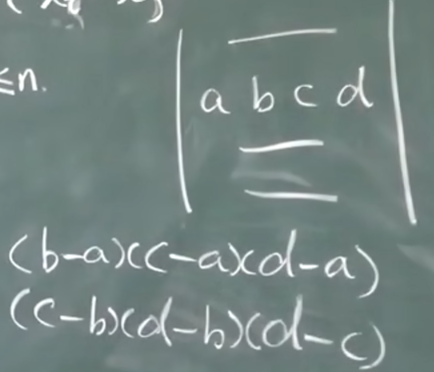 ≤n.
a b c d
(b-a)(c-a)(d-a)
(c-b)(d-b)(d-c)